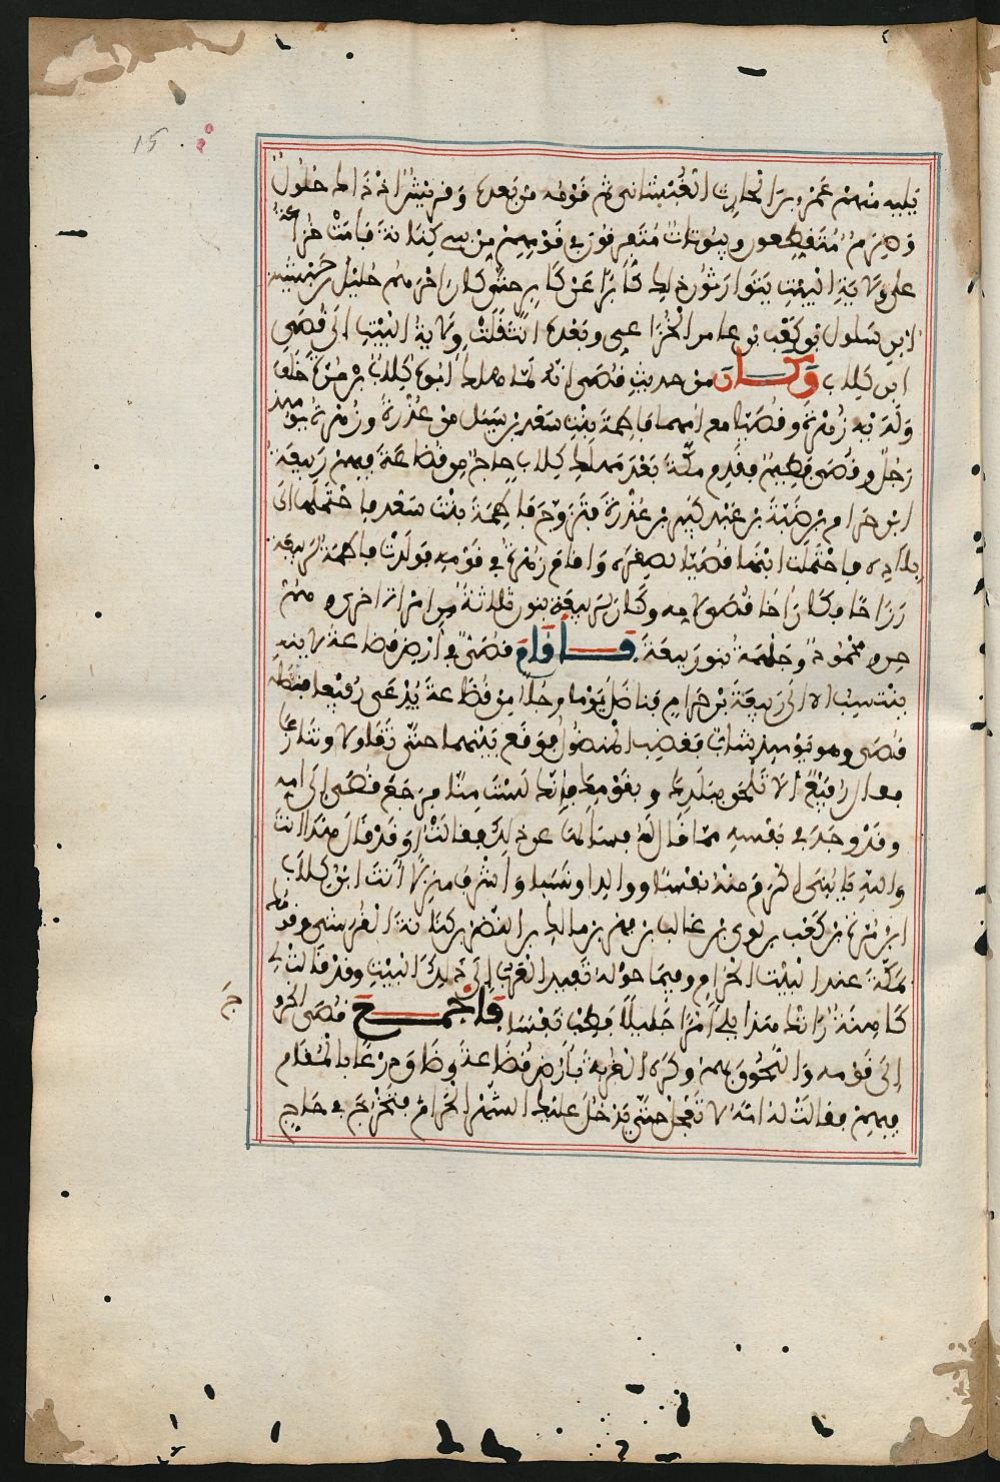 15
يليه منهم عمرو بن الحارث الغبشاني ثم قومه من بعده وقريش إذ ذاك حلول
وصرم متقطعون وبيوتات متفرقون في قومهم من بني كنانة فأقامت خزاعة
على ولاية البيت يتوارثون ذلك كابرا عن كابر حتى كان اخرهم حليل بن حبشية
ابن سلول بن كعب بن عامر الخزاعي وبعده انتقلت ولاية البيت إلى قصي
ابن كلاب وكان من حديث قصي انه لما هلك ابوه كلاب بن مرة خلف
ولديه زهرة وقصيا مع امهما فاطمة بنت سعد بن سيل من عذرة وزهرة يومئذ
رجل وقصي فطيم فقدم مكة بعد مهلك كلاب حاج من قضاعة فيهم ربيعة
ابن حرام بن ضبة بن عبد كبير بن عذرة فتزوج فاطمة بنت سعد فاحتملها الى
بلاده فاحتملت ابنها قصيا لصغره واقام زهرة في قومه فولدت فاطمة لربيعة
رزاحا فكان اخا قصي لامه وكان لربيعة بنون ثلاثة من امراة اخرى وهم
حن ومحمود وجلهمة بنو ربيعة فاقام قصي في ارض قضاعة لا ينتمي
الا الى ربيعة بن حرام فناضل يوما رجلا من قضاعة يدعى رفيعا فنضله
قصي وهو يومئذ شاب فغضب المنضول فوقع بينهما حتى تقاولا وتنازعا
فقال رفيع الا تلحق ببلدك وبقومك فإنك لست منا فرجع قصي إلى امه
وقد وجد في نفسه مما قال له فسألها عن ذلك فقالت او قد قال هذا انت
والله يا بني اكرم منه نفسا ووالدا ونسبا واشرف منزلا أنت ابن كلاب
ابن مرة بن كعب بن لوي بن غالب بن فهر بن مالك بن النضر بن كنانة القرشي وقومك
بمكة عند البيت الحرام وفيما حوله تفد العرب إلى ذلك البيت وقد قالت لي
كاهنة رأتك هذا يلي أمرا جليلا فطب نفسا فاجمع قصي الخروج
إلى قومه واللحوق بهم وكره الغربة بأرض قضاعة وضاق ذرعا بالمقام
فيهم فقالت له امه لا تعجل حتى يدخل عليك الشهر الحرام فتخرج في حاج